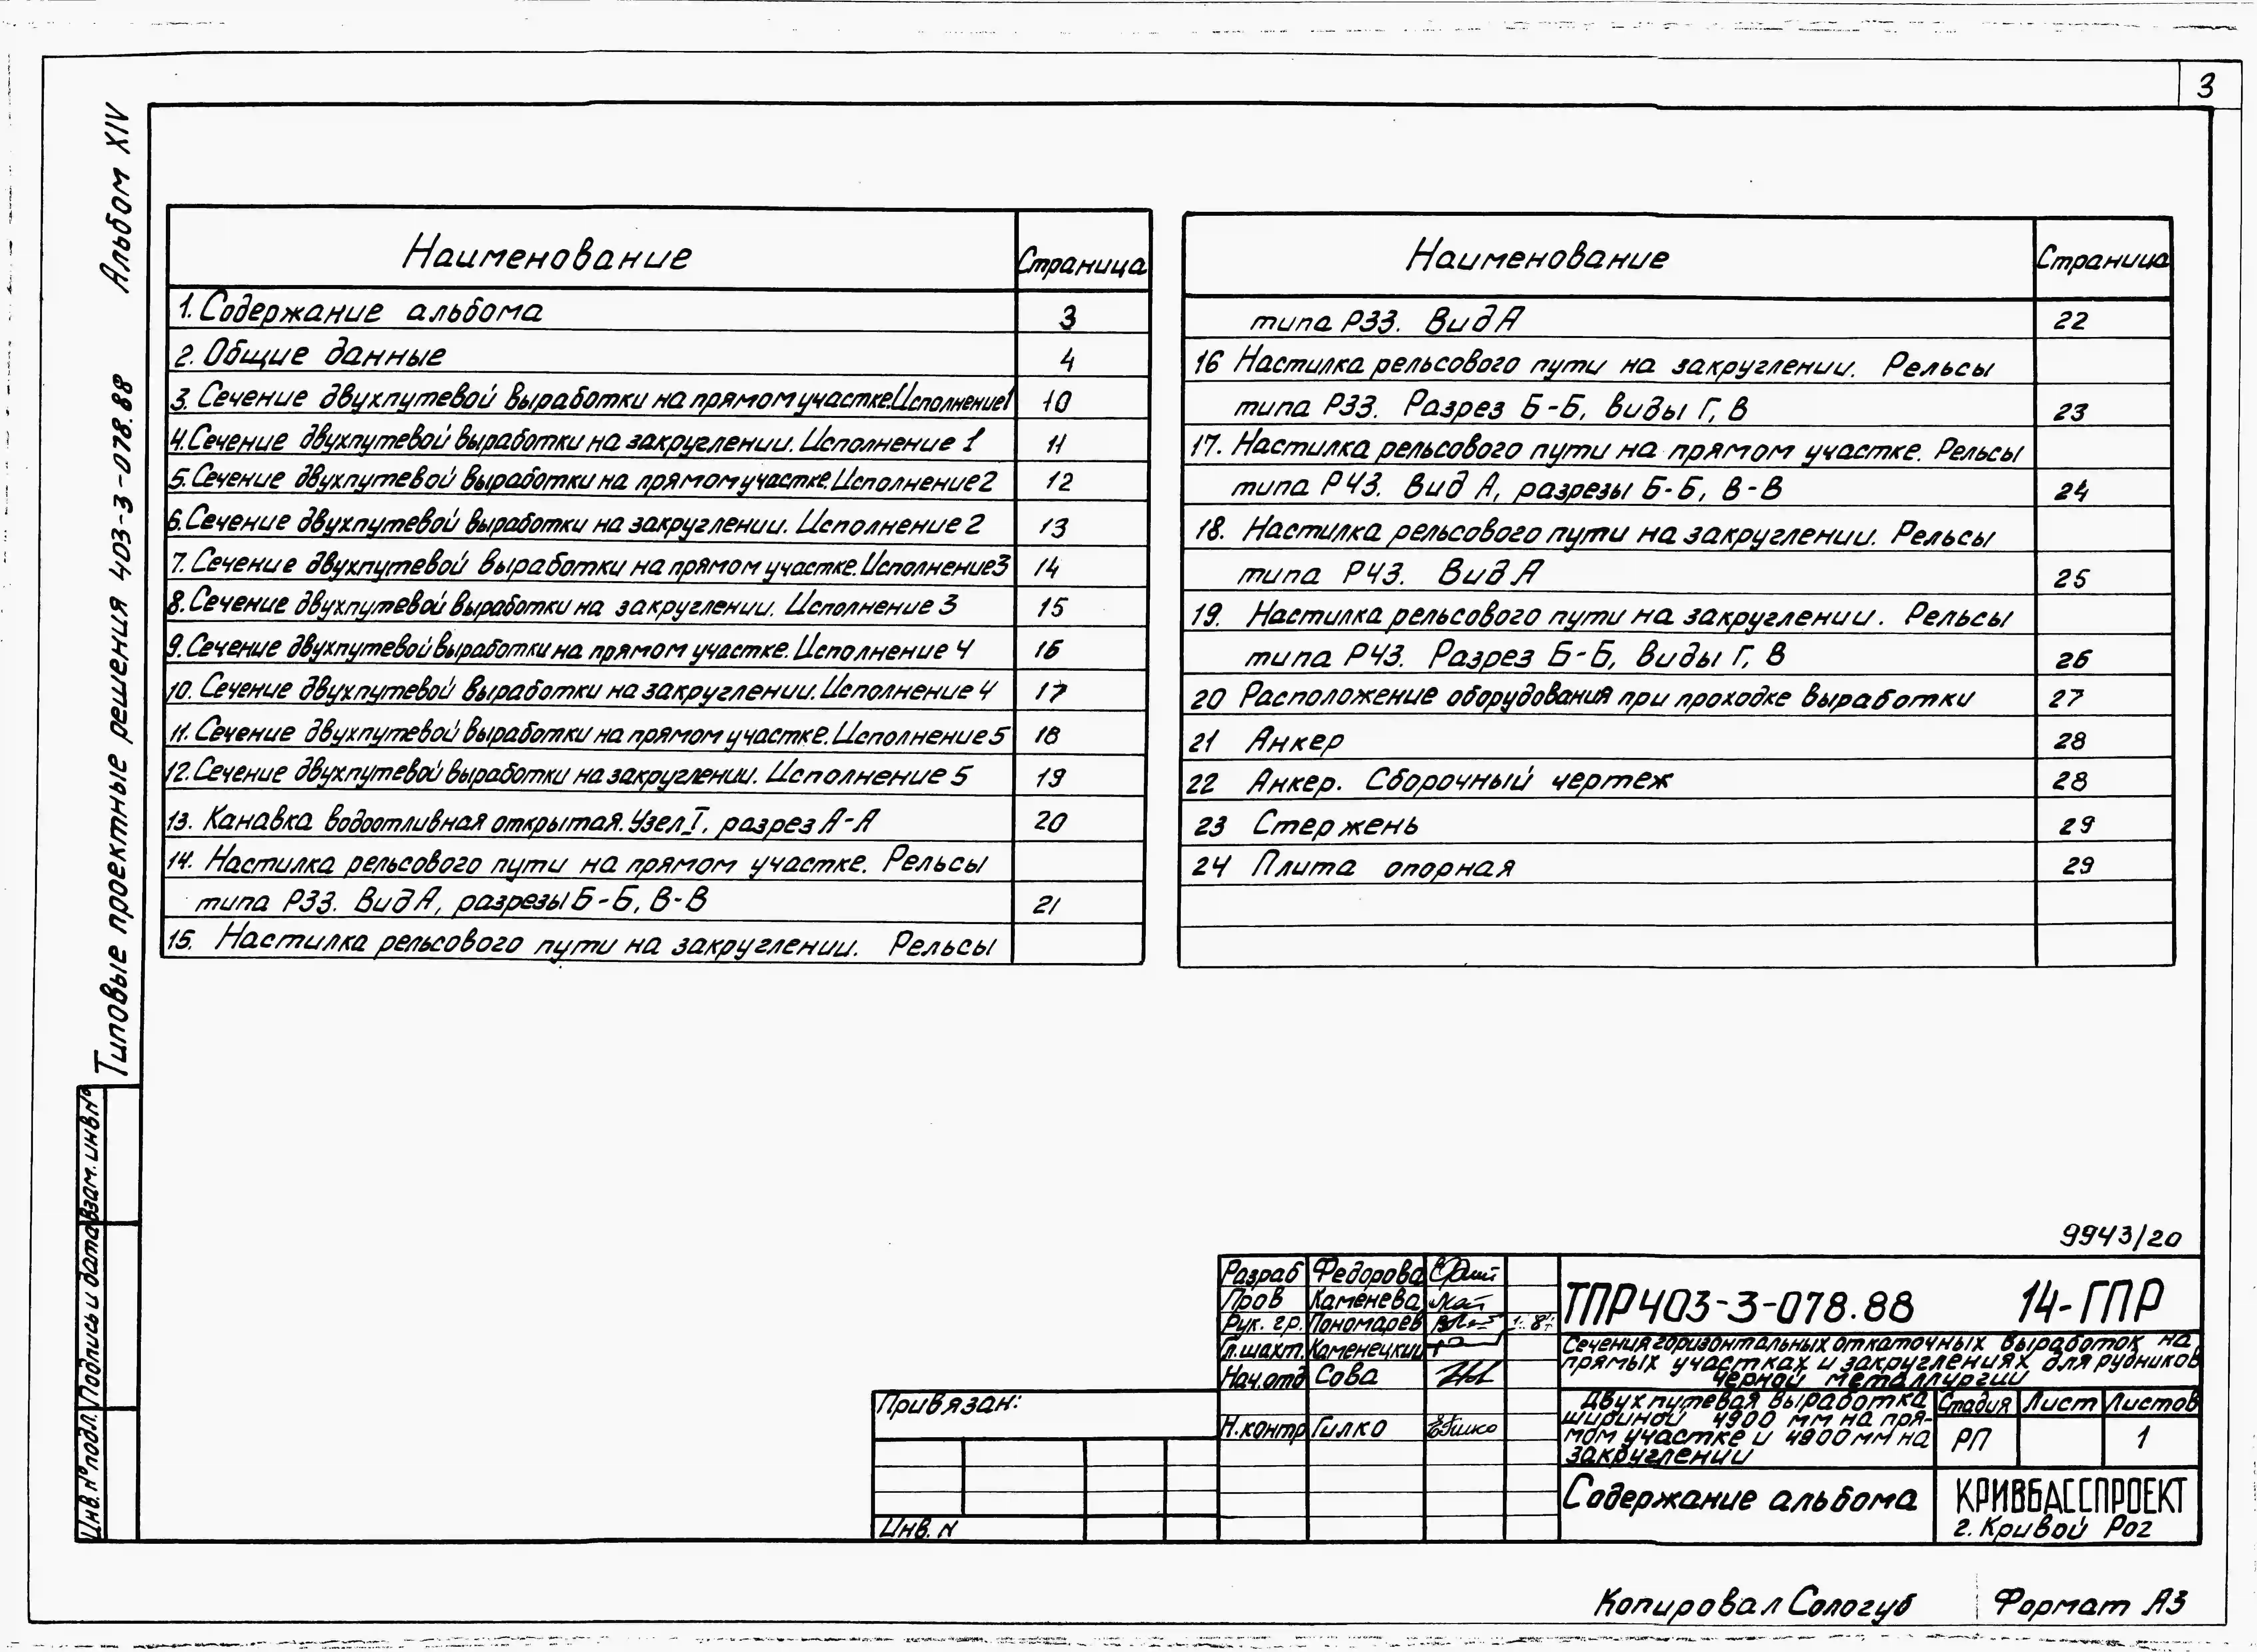 3
Альбом XIV
Типовые проектные решения 403-3-078.88
Наименование Страница
1. Содержание альбома 3
2. Общие данные 4
3. Сечение двухпутевой выработки на прямом участке. Исполнение 1 10
4. Сечение двухпутевой выработки на закруглении. Исполнение 1 11
5. Сечение двухпутевой выработки на прямом участке. Исполнение 2 12
6. Сечение двухпутевой выработки на закруглении. Исполнение 2 13
7. Сечение двухпутевой выработки на прямом участке. Исполнение 3 14
8. Сечение двухпутевой выработки на закруглении. Исполнение 3 15
9. Сечение двухпутевой выработки на прямом участке. Исполнение 4 16
10. Сечение двухпутевой выработки на закруглении. Исполнение 4 17
11. Сечение двухпутевой выработки на прямом участке. Исполнение 5 18
12. Сечение двухпутевой выработки на закруглении. Исполнение 5 19
13. Канавка водоотливная открытая. Узел I, разрез А-А 20
14. Настилка рельсового пути на прямом участке. Рельсы
типа Р33. Вид А, разрезы Б-Б, В-В 21
15. Настилка рельсового пути на закруглении. Рельсы
Наименование Страница
типа Р33. Вид А 22
16 Настилка рельсового пути на закруглении. Рельсы
типа Р33. Разрез Б-Б, виды Г, В 23
17. Настилка рельсового пути на прямом участке. Рельсы
типа Р43. Вид А, разрезы Б-Б, В-В 24
18. Настилка рельсового пути на закруглении. Рельсы
типа Р43. Вид А 25
19. Настилка рельсового пути на закруглении. Рельсы
типа Р43. Разрез Б-Б, виды Г, В 26
20 Расположение оборудования при проходке выработки 27
21 Анкер 28
22 Анкер. Сборочный чертеж 28
23 Стержень 29
24 Плита опорная 29
Взам. инв. №
Подпись и дата
Инв. № подл.
9943/20
Разраб Федорова
Пров Каменева
Рук. гр. Пономарев
Гл. шахт. Каменецкий
Нач. отд Сова
Н. контр Гилко
Привязан:
Инв. N
ТПР 403-3-078.88 14-ГПР
Сечения горизонтальных откаточных выработок на
прямых участках и закруглениях для рудников
черной металлургии
Двухпутевая выработка
шириной 4900 мм на пря-
мом участке и 4900 мм на
закруглении
Стадия Лист Листов
РП 1
Содержание альбома
КРИВБАССПРОЕКТ
г. Кривой Рог
Копировал Сологуб Формат А3